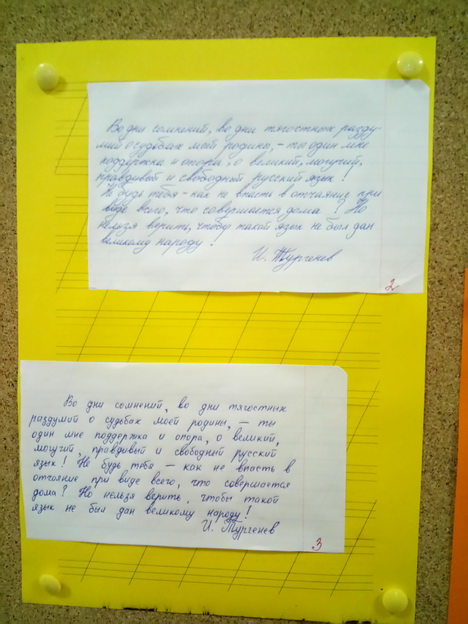 Во дни сомнений, во дни тягостных разду-
мий о судьбах моей родины, - ты один мне
поддержка и опора, о великий, могучий,
правдивый и свободный русский язык!
Не будь тебя - как не впасть в отчаяние при
виде всего, что совершается дома? Но
нельзя верить, чтобы такой язык не был дан
великому народу!
И. Тургенев
2
Во дни сомнений, во дни тягостных
раздумий о судьбах моей родины, — ты
один мне поддержка и опора, о великий,
могучий, правдивый и свободный русский
язык! Не будь тебя — как не впасть в
отчаяние при виде всего, что совершается
дома? Но нельзя верить, чтобы такой
язык не был дан великому народу!
И. Тургенев
3